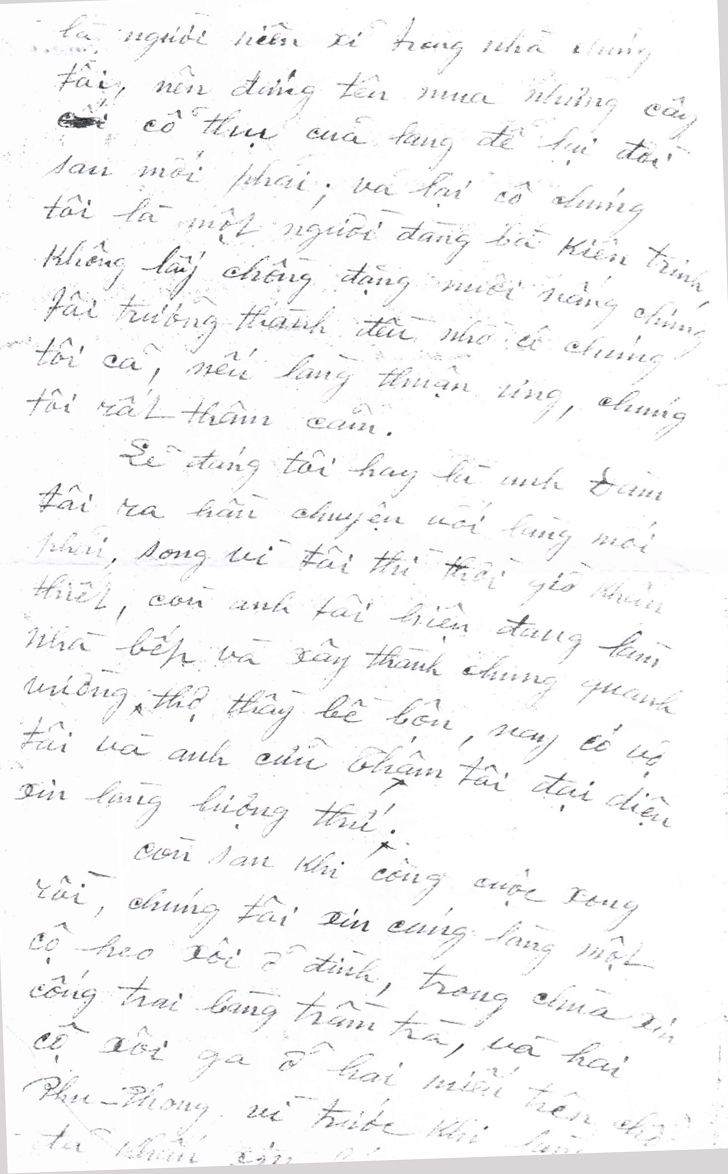 là người niên xỉ trong nhà chúng
tôi, nên đứng tên mua những cây
cổ thụ của làng để lại đời
sau mới phải; và lại cô chúng
tôi là một người đàng bà Kiên trinh,
không lấy chồng đặng nuôi nàng chúng
tôi trưởng thành đều nhờ cô chúng
tôi cả, nếu làng thuận ưng, chúng
tôi rất thâm cảm.
Lẽ đáng tôi hay là anh Đàm
tôi ra hầu chuyện với làng mới
phải, song vì tôi thì thời giờ khẩn
thiết, còn anh tôi hiện đang làm
nhà bếp và xây thành chung quanh
vườn, thợ thầy bề bộn, nay có vợ
tôi và anh cửu Thậm tôi đại diện
xin làng lượng thứ.
còn sau khi công cuộc xong
rồi, chúng tôi xin cúng làng một
cộ heo xôi ở đình, trong chùa xin
cống trai bàng trầm trà, và hai
cộ xôi gà ở hai miếu trên chợ
Phu-Phong vì trước khi làng